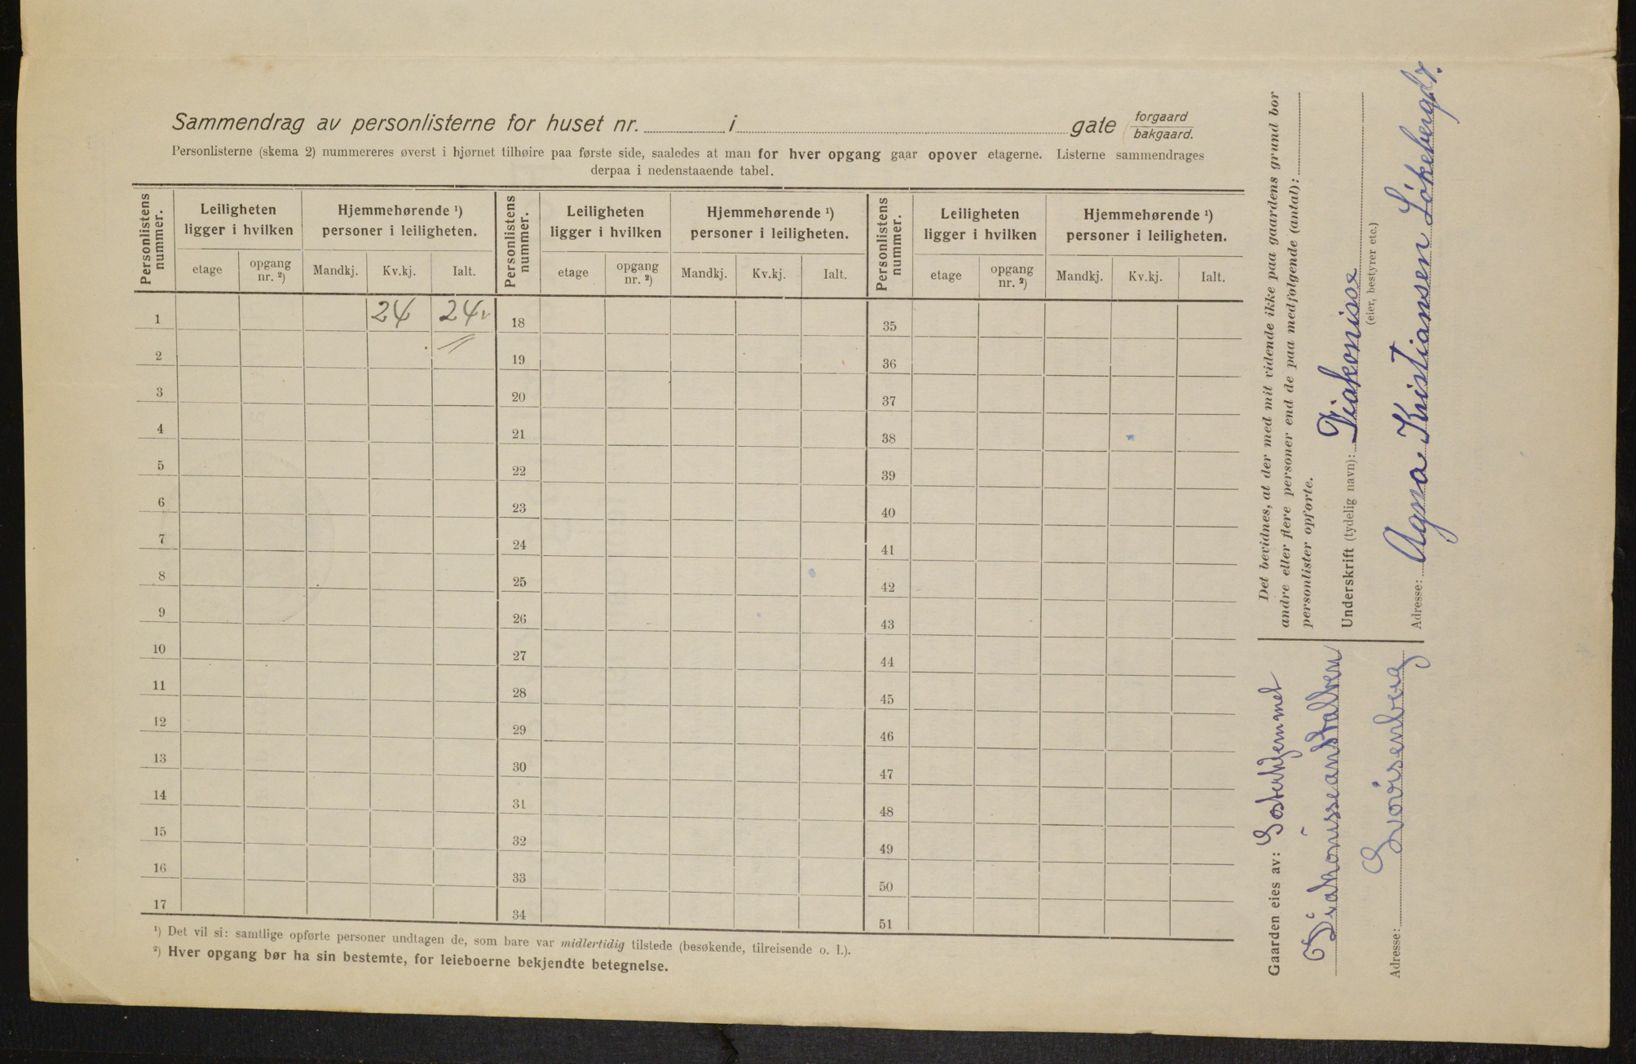 Sammendrag av personlisterne for huset nr. i gate forgaard bakgaard.
Personlisterne (skema 2) nummereres øverst i hjørnet tilhøire paa første side, saaledes at man for hver opgang gaar opover etagerne. Listerne sammendrages
derpaa i nedenstaaende tabel.
Personlistens nummer. Leiligheten ligger i hvilken Hjemmehørende ¹) personer i leiligheten. Personlistens nummer. Leiligheten ligger i hvilken Hjemmehørende ¹) personer i leiligheten. Personlistens nummer. Leiligheten ligger i hvilken Hjemmehørende ¹) personer i leiligheten.
etage opgang nr. ²) Mandkj. Kv.kj. Ialt. etage opgang nr. ²) Mandkj. Kv.kj. Ialt. etage opgang nr. ²) Mandkj. Kv.kj. Ialt.
1 24 24 18 35
2 19 36
3 20 37
4 21 38
5 22 39
6 23 40
7 24 41
8 25 42
9 26 43
10 27 44
11 28 45
12 29 46
13 30 47
14 31 48
15 32 49
16 33 50
17 34 51
¹) Det vil si: samtlige opførte personer undtagen de, som bare var midlertidig tilstede (besøkende, tilreisende o. l.).
²) Hver opgang bør ha sin bestemte, for leieboerne bekjendte betegnelse.
Det bevidnes, at der med mit vidende ikke paa gaardens grund bor
andre eller flere personer end de paa medfølgende (antal):
personlister opførte.
Underskrift (tydelig navn): Diakonisse
(eier, bestyrer etc.)
Adresse: Agna Kristiansen Lökebergdr.
Gaarden eies av: Søsterhjemmet
Diakonisseanstalten
Adresse: Lovisenberg